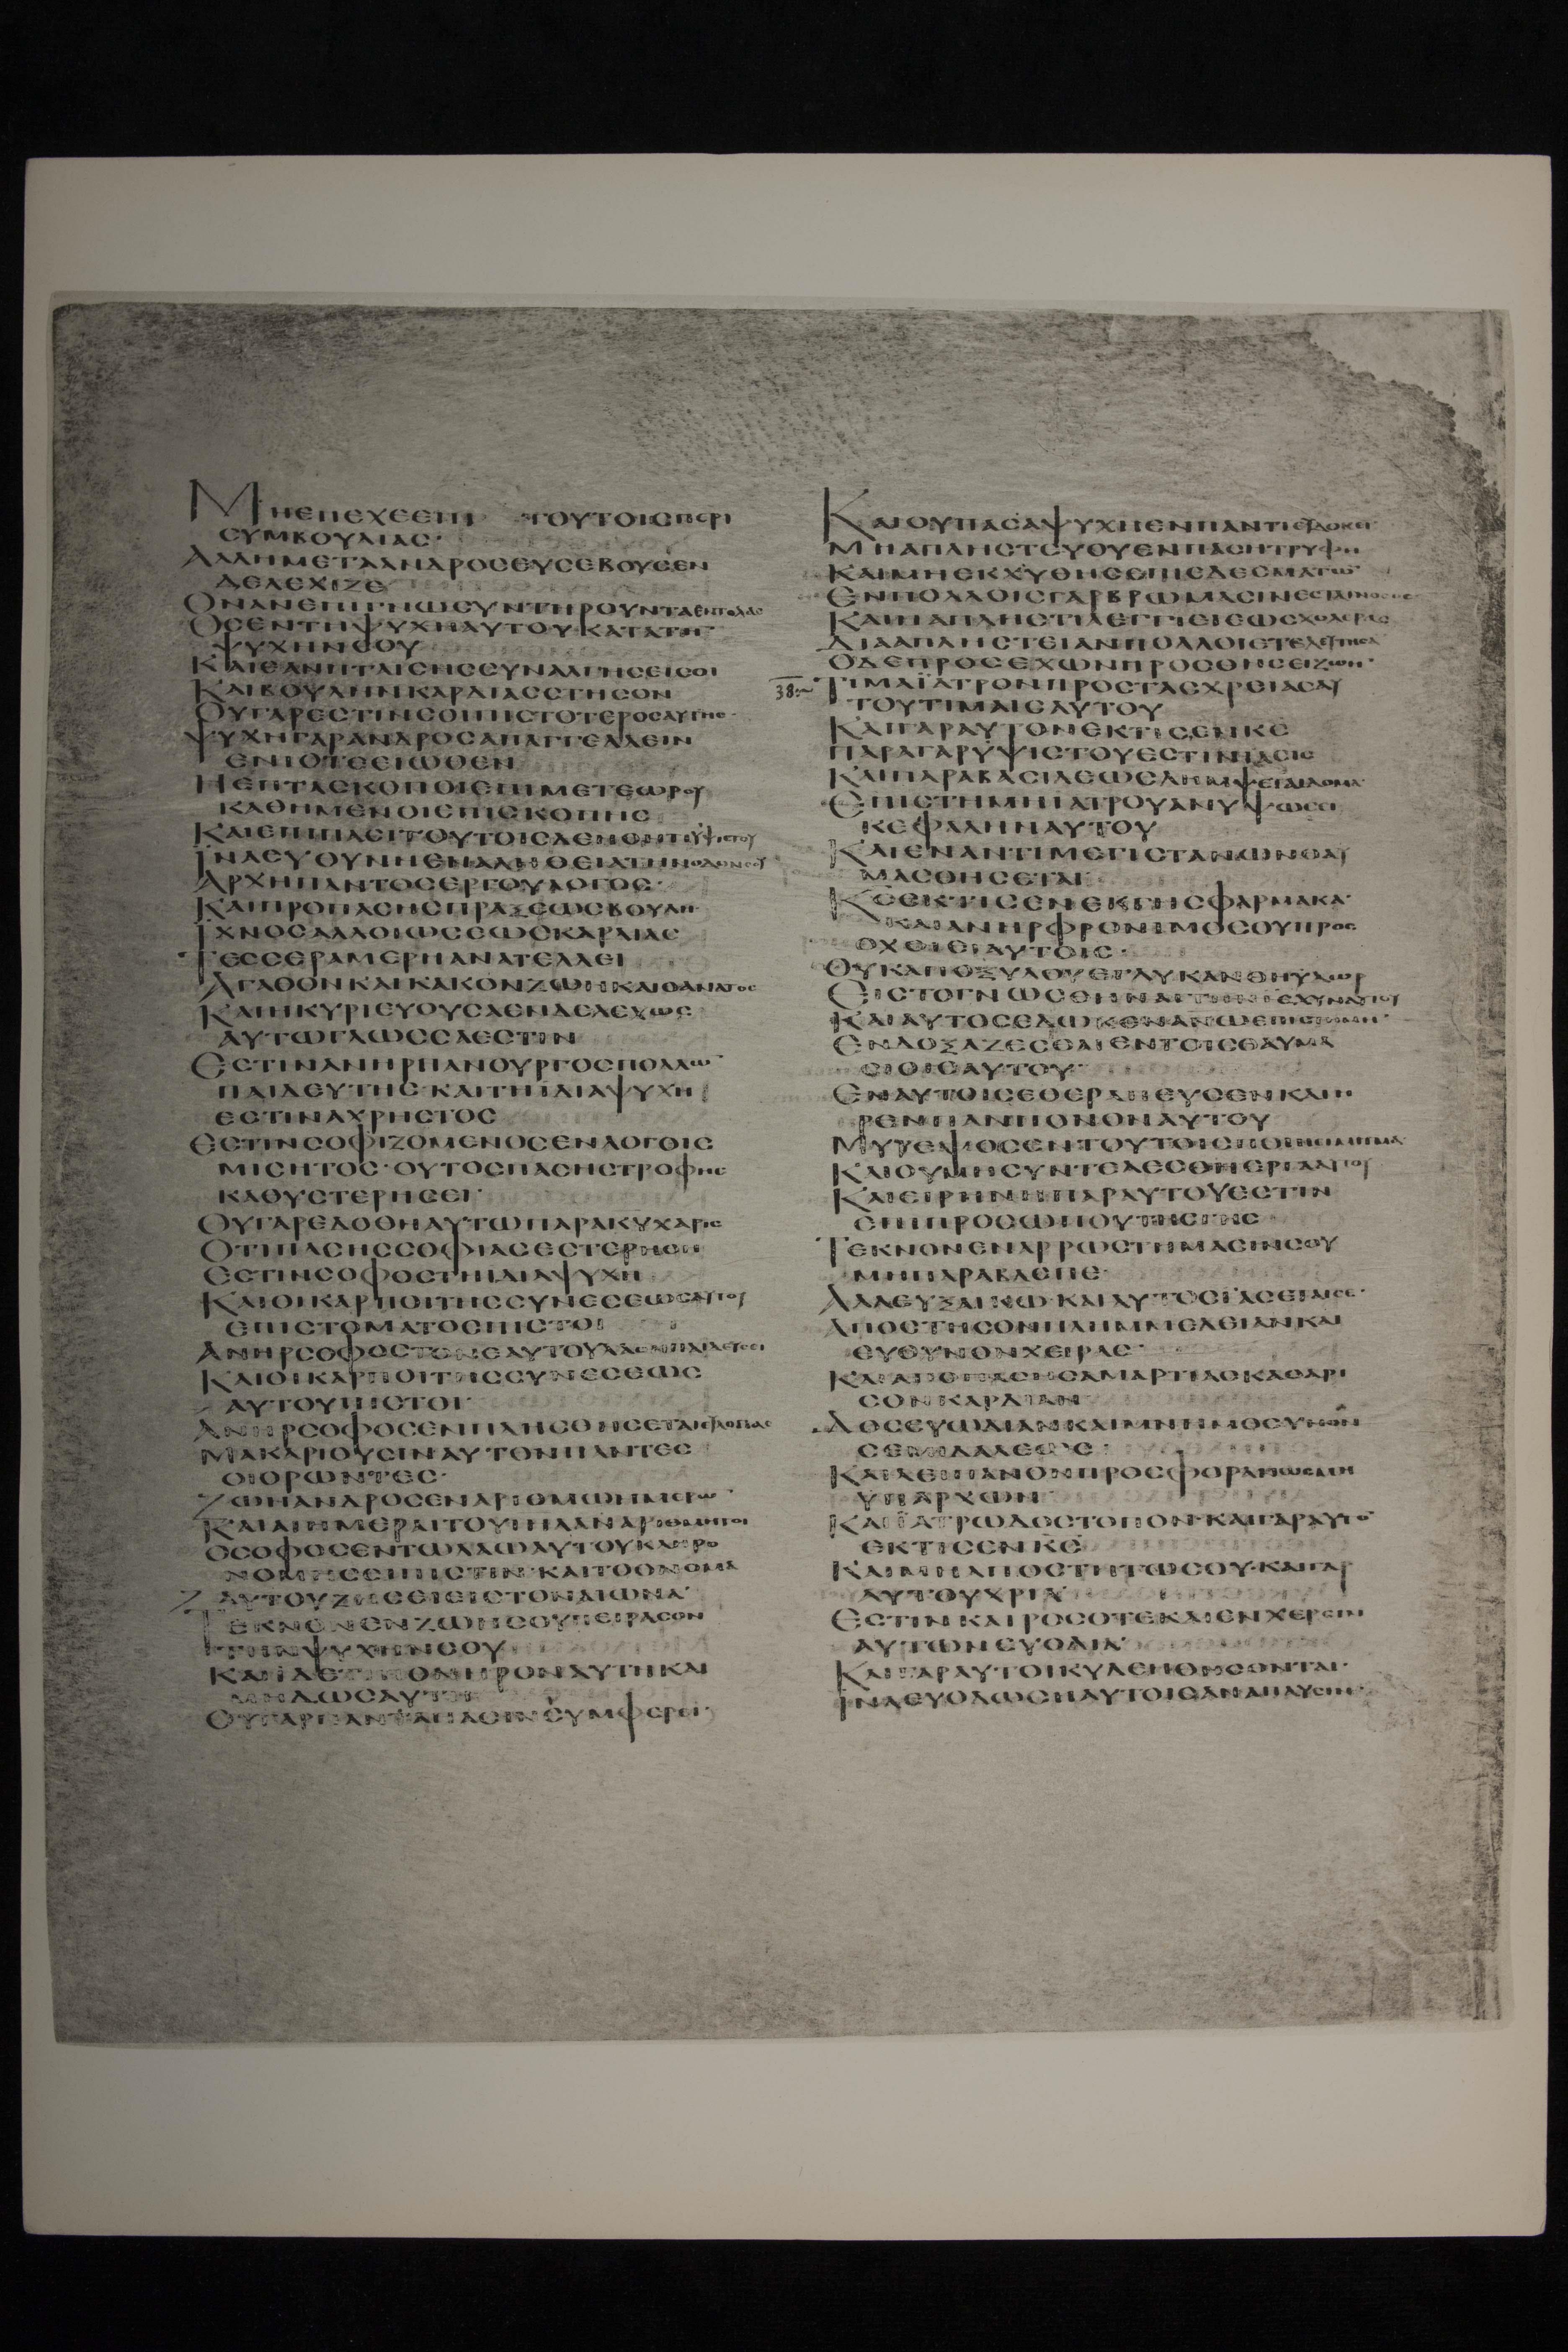 ΜΗΕΠΕΧΕΕΠΙ ΤΟΥΤΟΙΣΠΕΡΙ
ΣΥΜΒΟΥΛΙΑΣ·
ΑΛΛΗΜΕΤΑΑΝΔΡΟΣΕΥΣΕΒΟΥΣΕΝ
ΔΕΛΕΧΙΖΕ
ΟΝΑΝΕΠΙΓΝΩΣΥΝΤΗΡΟΥΝΤΑΕΝΤΟΛΑΣ
ΟΣΕΝΤΗΨΥΧΗΑΥΤΟΥΚΑΤΑΤΗ̅
ΨΥΧΗΝΣΟΥ
ΚΑΙΕΑΝΠΤΑΙΣΗΣΣΥΝΑΛΓΗΣΕΙΣΟΙ
ΚΑΙΒΟΥΛΗΝΚΑΡΔΙΑΣΣΤΗΣΟΝ
ΟΥΓΑΡΕΣΤΙΝΣΟΙΠΙΣΤΟΤΕΡΟΣΑΥΤΗΣ·
ΨΥΧΗΓΑΡΑΝΔΡΟΣΑΠΑΓΓΕΛΛΕΙΝ
ΕΝΙΟΤΕΕΙΩΘΕΝ
ΗΕΠΤΑΣΚΟΠΟΙΕΠΙΜΕΤΕΩΡΟΥ
ΚΑΘΗΜΕΝΟΙΕΠΙΣΚΟΠΗΣ
ΚΑΙΕΠΙΠΑΣΙΤΟΥΤΟΙΣΔΕΗΘΗΤΙΫΨΙΣΤΟΥ
ΙΝΑΕΥΘΥΝΗΕΝΑΛΗΘΕΙΑΤΗΝΟΔΟΝΣΟΥ
ΑΡΧΗΠΑΝΤΟΣΕΡΓΟΥΛΟΓΟΣ·
ΚΑΙΠΡΟΠΑΣΗΣΠΡΑΞΕΩΣΒΟΥΛΗ·
ΙΧΝΟΣΑΛΛΟΙΩΣΕΩΣΚΑΡΔΙΑΣ
ΤΕΣΣΕΡΑΜΕΡΗΑΝΑΤΕΛΛΕΙ
ΑΓΑΘΟΝΚΑΙΚΑΚΟΝΖΩΗΚΑΙΘΑΝΑΤΟΣ
ΚΑΙΗΚΥΡΙΕΥΟΥΣΑΕΝΔΕΛΕΧΩΣ
ΑΥΤΩΓΛΩΣΣΑΕΣΤΙΝ
ΕΣΤΙΝΑΝΗΡΠΑΝΟΥΡΓΟΣΠΟΛΛΩ̅
ΠΑΙΔΕΥΤΗΣ·ΚΑΙΤΗΙΔΙΑΨΥΧΗ
ΕΣΤΙΝΑΧΡΗΣΤΟΣ
ΕΣΤΙΝΣΟΦΙΖΟΜΕΝΟΣΕΝΛΟΓΟΙΣ
ΜΙΣΗΤΟΣ·ΟΥΤΟΣΠΑΣΗΣΤΡΟΦΗΣ
ΚΑΘΥΣΤΕΡΗΣΕΙ·
ΟΥΓΑΡΕΔΟΘΗΑΥΤΩΠΑΡΑΚΥΧΑΡΙΣ
ΟΤΙΠΑΣΗΣΣΟΦΙΑΣΕΣΤΕΡΗΘΗ
ΕΣΤΙΝΣΟΦΟΣΤΗΙΔΙΑΨΥΧΗ
ΚΑΙΟΙΚΑΡΠΟΙΤΗΣΣΥΝΕΣΕΩΣΑΥΤΟΥ
ΕΠΙΣΤΟΜΑΤΟΣΠΙΣΤΟΙ
ΑΝΗΡΣΟΦΟΣΤΟΝΕΑΥΤΟΥΛΑΟΝΠΑΙΔΕΥΣΕΙ
ΚΑΙΟΙΚΑΡΠΟΙΤΗΣΣΥΝΕΣΕΩΣ
ΑΥΤΟΥΠΙΣΤΟΙ·
ΑΝΗΡΣΟΦΟΣΕΝΠΛΗΣΘΗΣΕΤΑΙΕΥΛΟΓΙΑΣ
ΜΑΚΑΡΙΟΥΣΙΝΑΥΤΟΝΠΑΝΤΕΣ
ΟΙΟΡΩΝΤΕΣ·
ΖΩΗΑΝΔΡΟΣΕΝΑΡΙΘΜΩΗΜΕΡΩ̅
ΚΑΙΑΙΗΜΕΡΑΙΤΟΥΙΗΛΑΝΑΡΙΘΜΗΤΟΙ
ΟΣΟΦΟΣΕΝΤΩΛΑΩΑΥΤΟΥΚΛΗΡΟ
ΝΟΜΗΣΕΙΠΙΣΤΙΝ·ΚΑΙΤΟΟΝΟΜΑ
ΑΥΤΟΥΖΗΣΕΙΕΙΣΤΟΝΑΙΩΝΑ·
ΤΕΚΝΟΝΕΝΖΩΗΣΟΥΠΕΙΡΑΣΟΝ
ΤΗΝΨΥΧΗΝΣΟΥ
ΚΑΙΙΔΕΤΙΠΟΝΗΡΟΝΑΥΤΗΚΑΙ
ΜΗΔΩΣΑΥΤΗ
ΟΥΓΑΡΠΑΝΤΑΠΑΣΙΝΣΥΜΦΕΡΕΙ·
ΚΑΙΟΥΠΑΣΑΨΥΧΗΕΝΠΑΝΤΙΕΥΔΟΚΕΙ·
ΜΗΑΠΛΗΣΤΕΥΟΥΕΝΠΑΣΗΤΡΥΦΗ
ΚΑΙΜΗΕΚΧΥΘΗΣΕΠΙΕΔΕΣΜΑΤΩ̅
ΕΝΠΟΛΛΟΙΣΓΑΡΒΡΩΜΑΣΙΝΕΣΤΑΙΝΟΣΟΣ
ΚΑΙΗΑΠΛΗΣΤΙΑΕΓΓΙΕΙΕΩΣΧΟΛΕΡΑΣ
ΔΙΑΑΠΛΗΣΤΕΙΑΝΠΟΛΛΟΙΕΤΕΛΕΥΤΗΣΑ̅
ΟΔΕΠΡΟΣΕΧΩΝΠΡΟΣΘΗΣΕΙΖΩΗ̅·
38
ΤΙΜΑΪΑΤΡΟΝΠΡΟΣΤΑΣΧΡΕΙΑΣΑΥ
ΤΟΥΤΙΜΑΙΣΑΥΤΟΥ
ΚΑΙΓΑΡΑΥΤΟΝΕΚΤΙΣΕΝΚΣ
ΠΑΡΑΓΑΡΫΨΙΣΤΟΥΕΣΤΙΝΙΑΣΙΣ
ΚΑΙΠΑΡΑΒΑΣΙΛΕΩΣΛΗΜΨΕΤΑΙΔΟΜΑ·
ΕΠΙΣΤΗΜΗΙΑΤΡΟΥΑΝΥΨΩΣΕΙ
ΚΕΦΑΛΗΝΑΥΤΟΥ
ΚΑΙΕΝΑΝΤΙΜΕΓΙΣΤΑΝΩΝΘΑΥ
ΜΑΣΘΗΣΕΤΑΙ
ΚΣΕΚΤΙΣΕΝΕΚΓΗΣΦΑΡΜΑΚΑ·
ΚΑΙΑΝΗΡΦΡΟΝΙΜΟΣΟΥΠΡΟΣ
ΟΧΘΙΕΙΑΥΤΟΙΣ·
ΟΥΚΑΠΟΞΥΛΟΥΕΓΛΥΚΑΝΘΗΫΔΩΡ
ΕΙΣΤΟΓΝΩΣΘΗΝΑΙΤΗΝ
ΚΑΙΑΥΤΟΣΕΔΩΚΕΝΑΝΩΕΠΙΣΤΗΜΗΝ·
ΕΝΔΟΞΑΖΕΣΘΑΙΕΝΤΟΙΣΘΑΥΜΑ
ΣΙΟΙΣΑΥΤΟΥ·
ΕΝΑΥΤΟΙΣΕΘΕΡΑΠΕΥΣΕΝΚΑΙΗ
ΡΕΝΠΑΝΠΟΝΟΝΑΥΤΟΥ
ΜΥΡΕΨΟΣΕΝΤΟΥΤΟΙΣΠΟΙΗΣΕΙΜΙΓΜΑ
ΚΑΙΟΥΜΗΣΥΝΤΕΛΕΣΘΗΕΡΓΑΑΥΤΟΥ
ΚΑΙΕΙΡΗΝΗΠΑΡΑΥΤΟΥΕΣΤΙΝ
ΕΠΙΠΡΟΣΩΠΟΥΤΗΣΓΗΣ
ΤΕΚΝΟΝΕΝΑΡΡΩΣΤΗΜΑΣΙΝΣΟΥ
ΜΗΠΑΡΑΒΛΕΠΕ·
ΑΛΛΕΥΞΑΙΚΩ·ΚΑΙΑΥΤΟΣΪΑΣΕΤΑΙΣΕ·
ΑΠΟΣΤΗΣΟΝΠΛΗΜΜΕΛΕΙΑΝΚΑΙ
ΕΥΘΥΝΟΝΧΕΙΡΑΣ·
ΚΑΙΑΠΟΠΑΣΗΣΑΜΑΡΤΙΑΣΚΑΘΑΡΙ
ΣΟΝΚΑΡΔΙΑΝ
ΔΟΣΕΥΩΔΙΑΝΚΑΙΜΝΗΜΟΣΥΝΟΝ
ΣΕΜΙΔΑΛΕΩΣ
ΚΑΙΛΕΙΠΑΝΟΝΠΡΟΣΦΟΡΑΝΩΣΜΗ
ΫΠΑΡΧΩΝ
ΚΑΙΪΑΤΡΩΔΟΣΤΟΠΟΝ·ΚΑΙΓΑΡΑΥΤΟ̅
ΕΚΤΙΣΕΝΚΣ
ΚΑΙΜΗΑΠΟΣΤΗΤΩΣΟΥ·ΚΑΙΓΑΡ
ΑΥΤΟΥΧΡΙΑ
ΕΣΤΙΝΚΑΙΡΟΣΟΤΕΚΑΙΕΝΧΕΡΣΙΝ
ΑΥΤΩΝΕΥΟΔΙΑ·
ΚΑΙΓΑΡΑΥΤΟΙΚΥΔΕΗΘΗΣΟΝΤΑΙ·
ΙΝΑΕΥΟΔΩΣΗΑΥΤΟΙΣΑΝΑΠΑΥΣΙΝ·